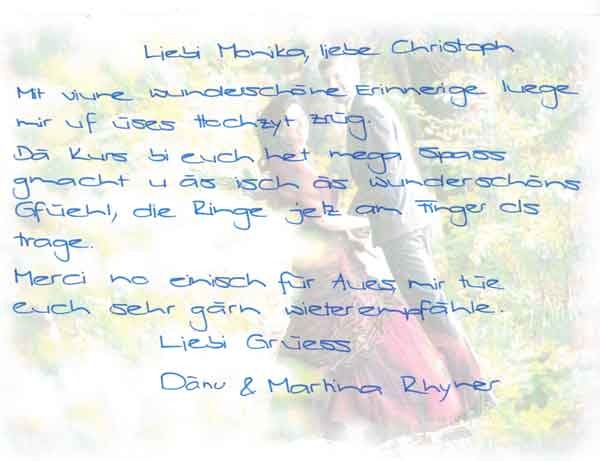 Liebi Monika, liebe Christoph
Mit viune wunderschöne Erinnerige luege
mir uf üses Hochzyt zrüg.
Dä Kurs bi euch het mega Spass
gmacht u äs isch äs wunderschöns
Gfüehl, die Ringe jetz am Finger ds
trage.
Merci no einisch für Aues, mir tüe
euch sehr gärn wieterempfähle.
Liebi Grüess
Dänu & Martina Rhyner